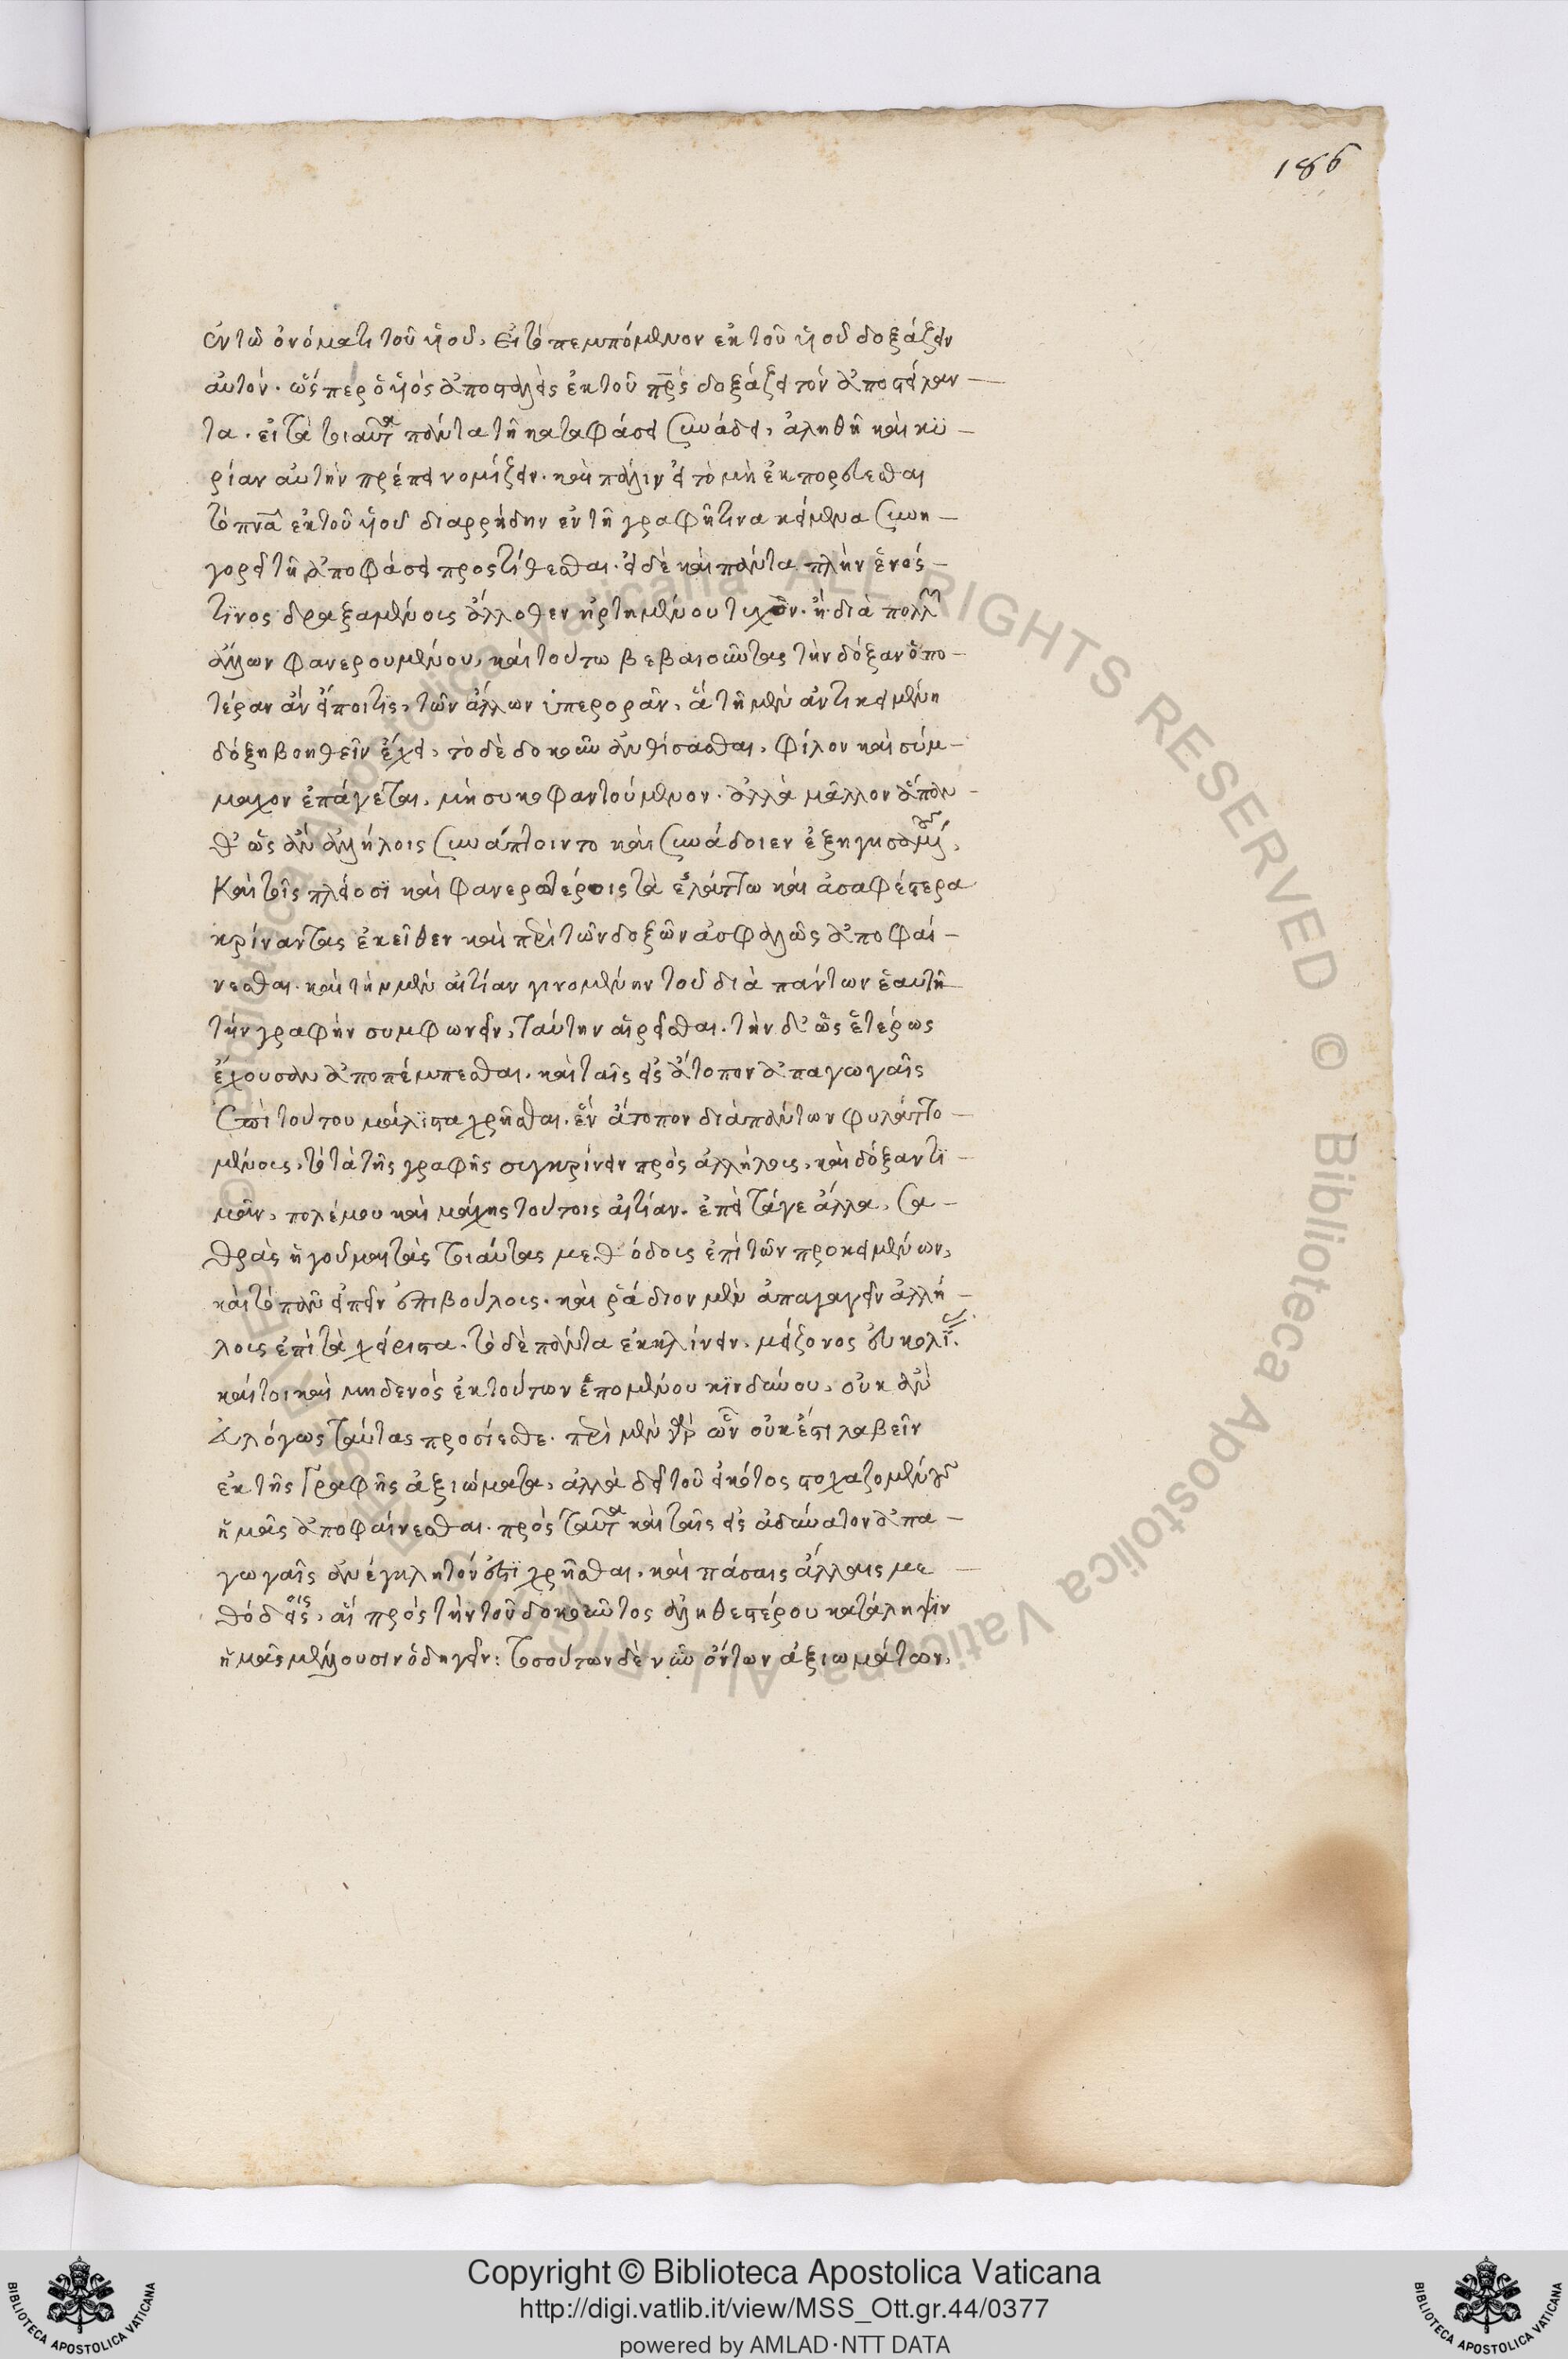 186
ἐν τῶ ὀνόματι τοῦ υἱοῦ, εἰ τὸ πεμπόμενον ἐκ τοῦ υἱοῦ δοξάζειν
αὐτόν. ὥσπερ ὁ υἱὸς ἀποσταλεὶς ἐκ τοῦ πρς δοξάζει τὸν ἀποστείλαν-
τα. εἰ τὰ τιαῦτα πάντα τῆ καταφάσει συνάδει, ἀληθῆ καὶ κυ-
ρίαν αὐτὴν πρέπει νομίζειν. καὶ πάλιν εἰ τὸ μὴ ἐκπορεύεσθαι
τὸ πνα ἐκ τοῦ υἱοῦ διαρρήδην ἐν τῆ γραφῆ τινα κείμενα συνη-
γορεῖ τῆ ἀποφάσει προστίθεσθαι. εἰ δὲ καὶ πάντα πλὴν ἑνός-
τινος δραξαμένους ἄλλοθεν ἠρτημένου τυχὸν. ἢ διὰ πολλῶν
ἄλλων φανερουμένου, καὶ τούτω βεβαιοῦντας τὴν δόξαν ὁπο-
τέραν ἂν εἴποι τις, τῶν ἄλλων ὑπερορᾶν, ἃ τῆ μὲν ἀντικειμένη
δόξη βοηθεῖν ἔχει, τὸ δὲ δοκοῦν ἀνθίσασθαι, φίλον καὶ σύμ-
μαχον ἐπάγεται, μὴ συκοφαντούμενον. ἀλλὰ μᾶλλον ἅπαν-
θ' ὡς ἂν ἀλλήλοις συνάπτοιντο καὶ συνάδοιεν ἐξηγησαμένους,
Καὶ τοῖς πλείοσι καὶ φανερωτέροις τὰ ἐλάττω καὶ ἀσαφέστερα
κρίναντας ἐκεῖθεν καὶ περὶ τῶν δοξῶν ἀσφαλῶς ἀποφαί-
νεσθαι. καὶ τὴν μὲν αἰτίαν γινομένην τοῦ διὰ πάντων ἑαυτῆ
τὴν γραφὴν συμφωνεῖν, ταύτην αἱρεῖσθαι. τὴν δ' ὡς ἑτέρως
ἔχουσαν ἀποπέμπεσθαι. καὶ ταῖς εἰς ἄτοπον ἀπαγωγαῖς
ἐπὶ τούτου μάλιστα χρῆσθαι. ἓν ἄτοπον διὰ πάντων φυλάττο-
μένους, τὸ τὰ τῆς γραφῆς συγκρίνειν πρὸς ἀλλήλους, καὶ δόξαν τι-
μᾶν, πολέμου καὶ μάχης τούτοις αἰτίαν. ἐπεὶ τάγε ἄλλα, σα-
θρὰς ἡγοῦμαι τὰς τιαύτας μεθόδους ἐπὶ τῶν προκειμένων,
καὶ τὸ πᾶν εἰπεῖν ἐπιβούλους. καὶ ῥάδιον μὲν ἀπαγαγεῖν ἀλλή-
λους ἐπὶ τὰ χείριστα. τὸ δὲ πάντα ἐκκλίνειν, μείζονος εὐκολί.
καίτοι καὶ μηδενὸς ἐκ τούτων ἑπομένου κινδύνου, οὐκ ἂν
ἀλόγως ταύτας προσίεσθε. περὶ μὲν γὰρ ὧν οὐκ ἔστι λαβεῖν
ἐκ τῆς Γραφῆς ἀξιώματα, ἀλλὰ δεῖ τοῦ εἰκότος στοχαζομένους
ἡμᾶς ἀποφαίνεσθαι. πρὸς ταῦτα καὶ ταῖς εἰς ἀδύνατον ἀπα-
γωγαῖς ἀνέγκλητόν ἐστι χρῆσθαι, καὶ πάσαις ἄλλαις με-
θόδοις, αἳ πρὸς τὴν τοῦ δοκοῦντος ἀληθεστέρου κατάληψιν
ἡμᾶς μέλλουσιν ὁδηγεῖν: τοσούτων δὲ νῦν ὄντων ἀξιωμάτων,
© Biblioteca Apostolica Vaticana ALL RIGHTS RESERVED © Biblioteca Apostolica Vaticana ALL RIGHTS RESERVED
Copyright © Biblioteca Apostolica Vaticana
http://digi.vatlib.it/view/MSS_Ott.gr.44/0377
powered by AMLAD·NTT DATA
BIBLIOTECA APOSTOLICA VATICANA
BIBLIOTECA APOSTOLICA VATICANA